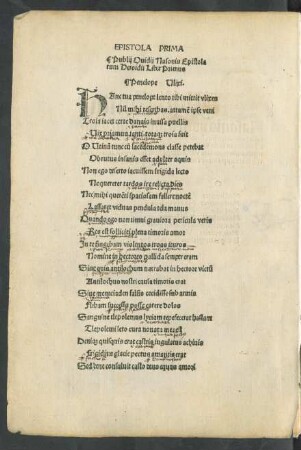 EPISTOLA PRIMA
¶ Publij Ouidij Nasonis Epistola
rum Heroidū Liber Primus
¶ Penelope Ulixi.
HAnc tua penelope lento tibi mittit ulixes
Nil mihi rescribas. attamē ipse veni
Troia iacet certe danais inuisa puellis
Vix priamus tanti. totaqȝ troia fuit
O Utinā tunc cū lacedemona classe petebat
Obrutus insanis esset adulter aquis
Non ego deserto iacuissem frigida lecto
Nec quererer tardos ire relicta dies
Nec mihi querēti spaciosam fallere noctē
Lassaret viduas pendula tela manus
Quando ego non timui grauiora pericula veris
Res est solliciti plena timoris amor
In te fingebam violentos troas ituros
Nomine in hectoreo pallida semper eram
Siue quis antilochum narrabat in hectore victū
Antilochus nostri causa timoris erat
Siue menetiaden falsis cecidisse sub armis
Flebam successu posse carere dolos
Sanguine tlepolemus lyciam tepefecerat hastam
Tlepolemi leto cura nouata mea est
Deniqȝ quisquis erat castris iugulatus achiuis
Frigidius glacie pectus amantis erat
Sed bene consuluit casto deus equus amori